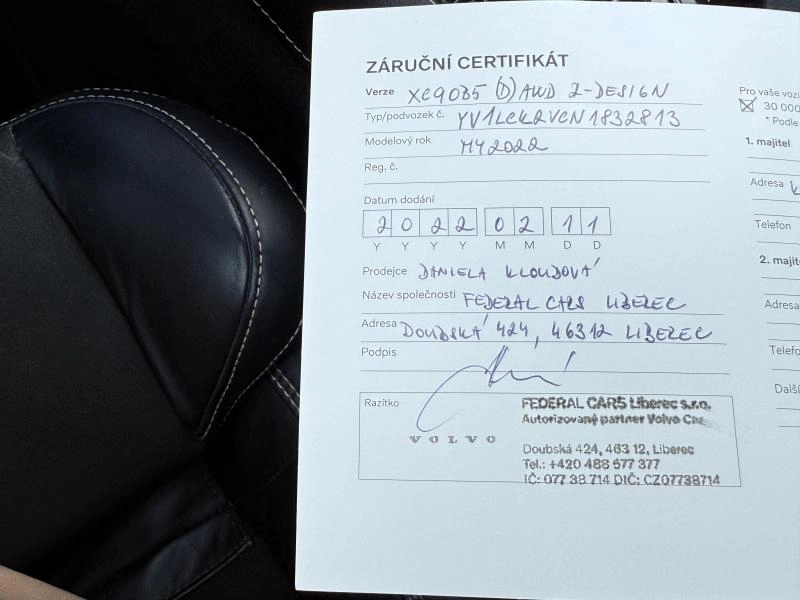 ZÁRUČNÍ CERTIFIKÁT
Verze XC90B5 (D) AWD R-DESIGN
Typ/podvozek č. YV1LCK2VCN1832813
Modelový rok MY2022
Reg. č.
Datum dodání
2 0 2 2 0 2 1 1
Y Y Y Y M M D D
Prodejce DANIELA KLOUDOVÁ
Název společnosti FEDERAL CARS LIBEREC
Adresa DOUBSKÁ 424, 46312 LIBEREC
Podpis
Razítko
VOLVO
FEDERAL CARS Liberec s.r.o.
Autorizovaný partner Volvo Car
Doubská 424, 463 12, Liberec
Tel.: +420 488 577 377
IČ: 077 38 714 DIČ: CZ07738714
Pro vaše vozi
30 000
* Podle
1. majitel
Adresa
Telefon
2. majite
Adresa
Telefo
Další